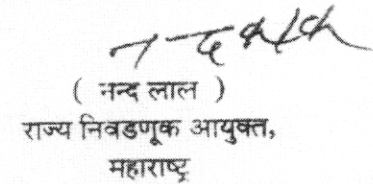 ( नन्द लाल )
राज्य निवडणूक आयुक्त,
महाराष्ट्र